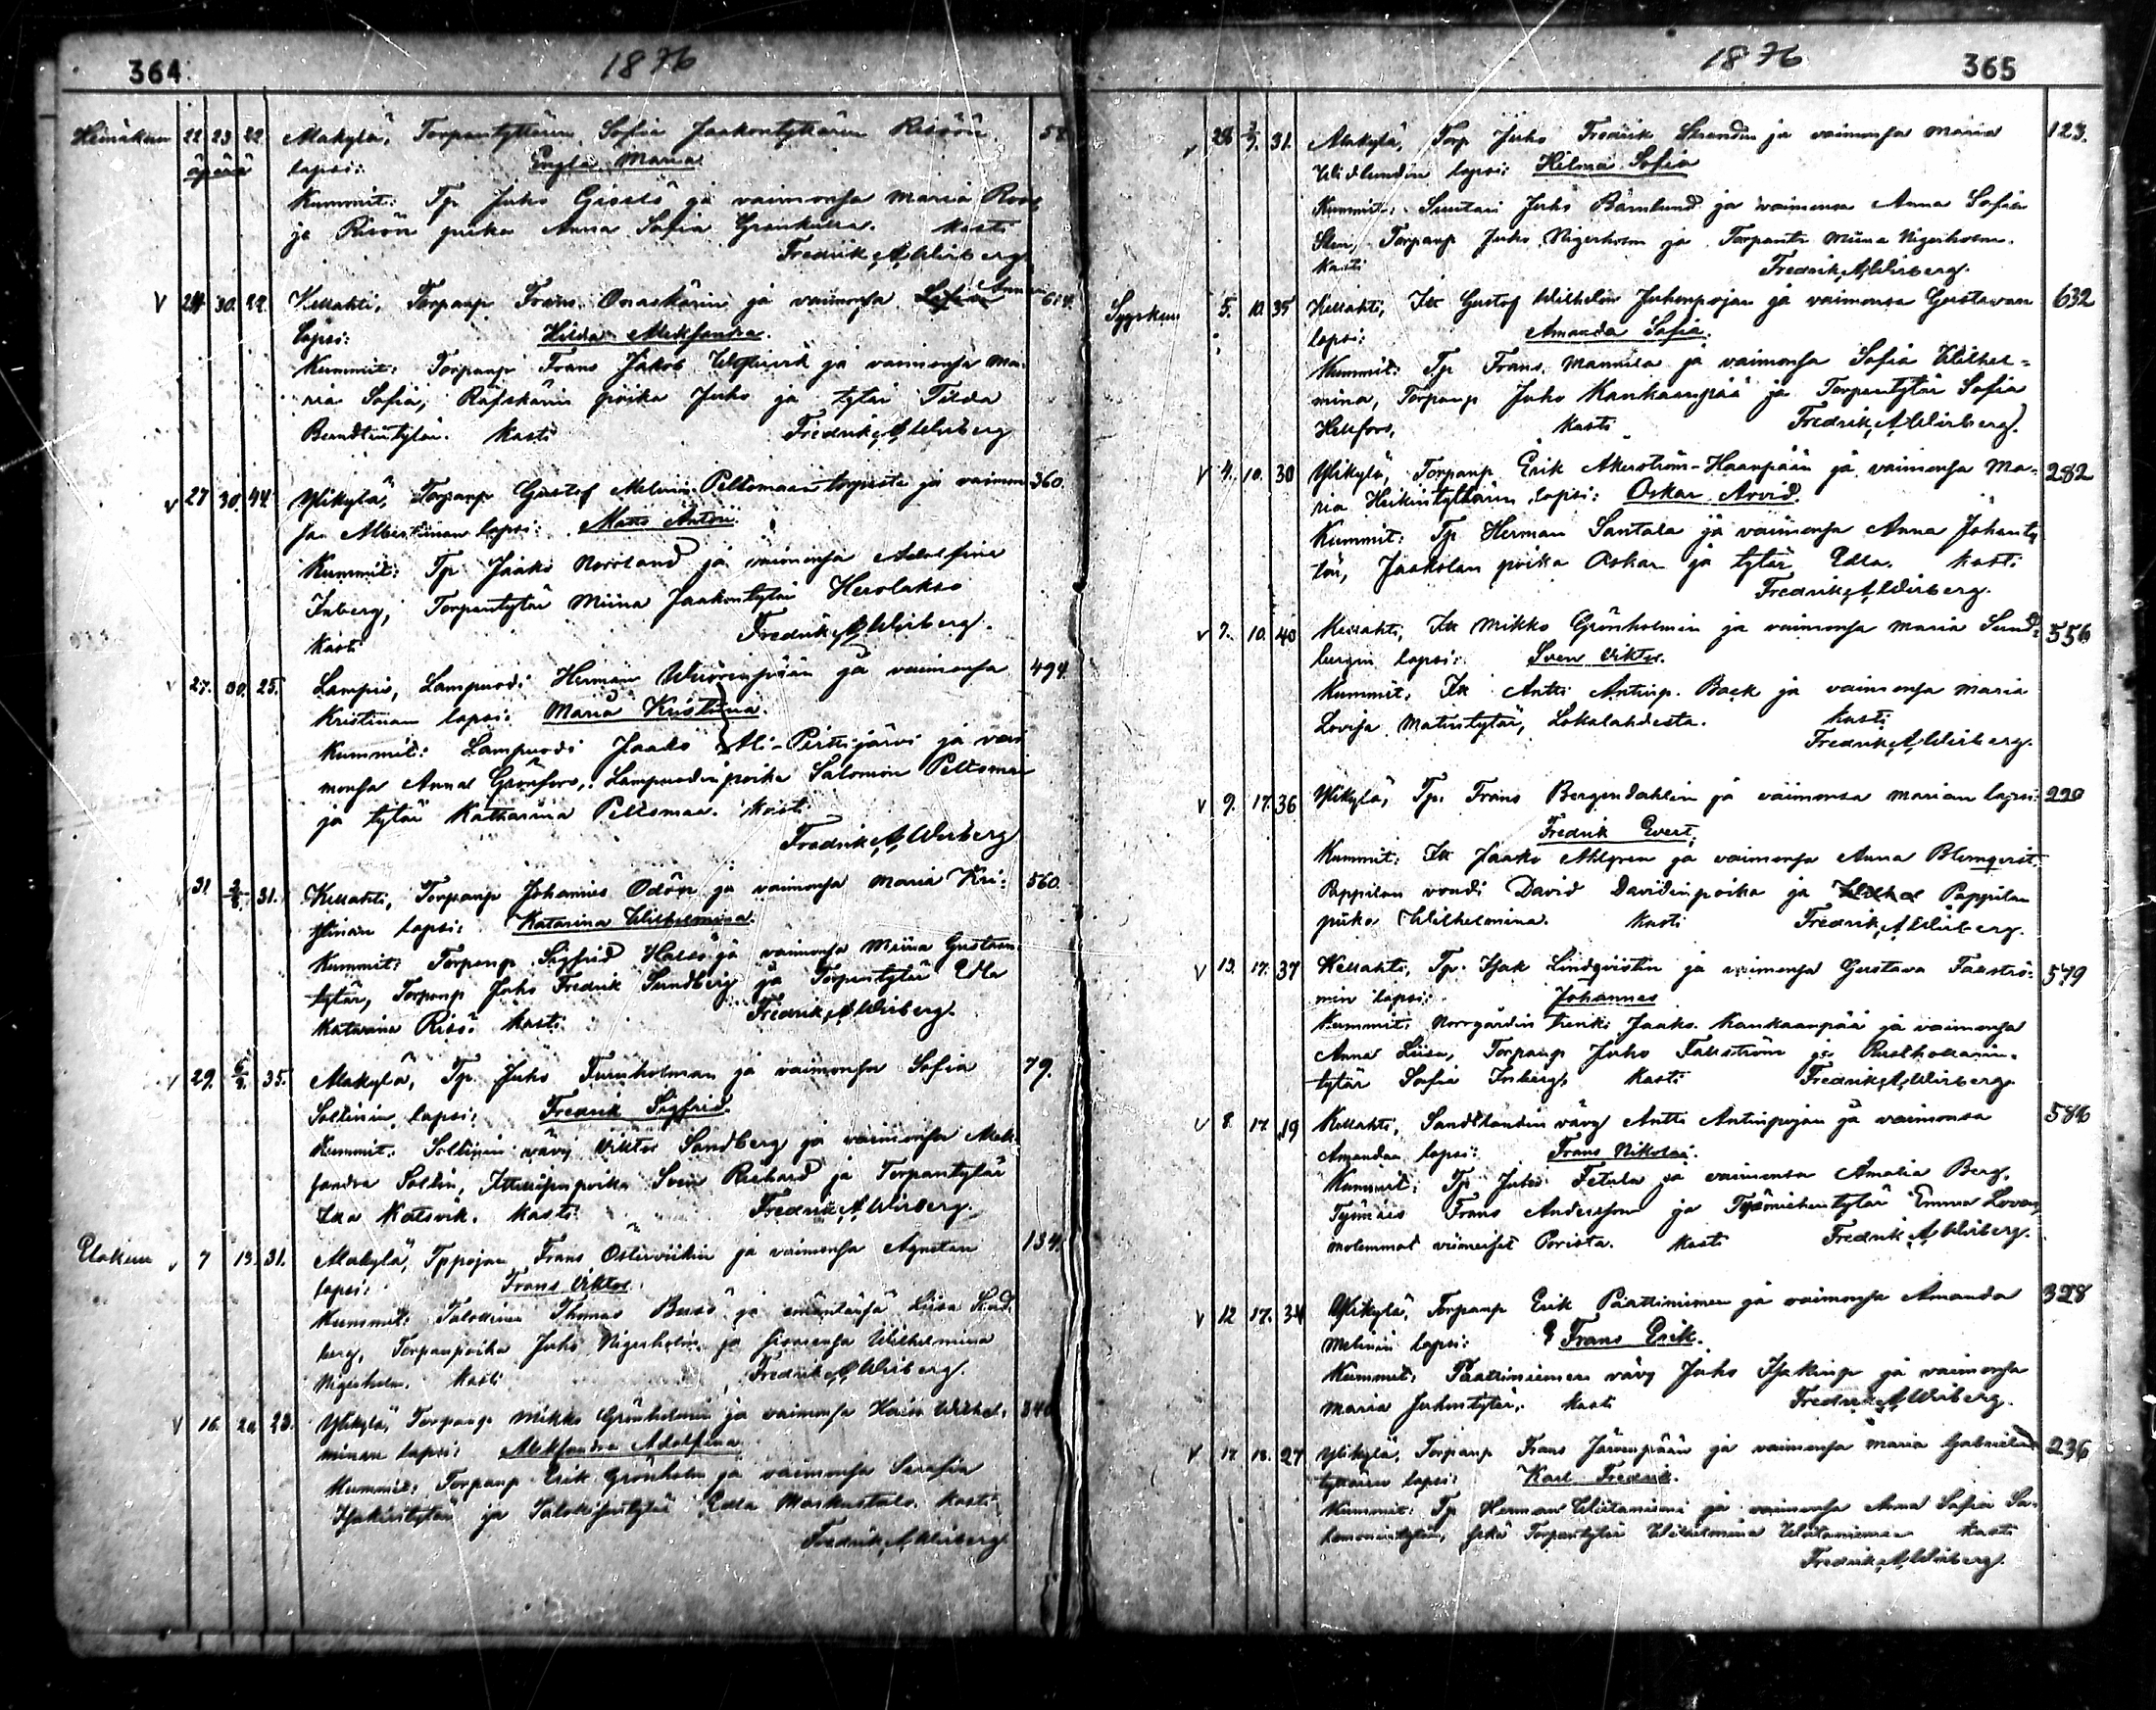 364
1876
Heinäkuu 22 23 22 Makylä, Torpantyttären Sofia Jaakontyttären Risöön 58
äpärä lapsi: Engla Maria
Kummit: Tp. Juho Gisslö ja vaimonsa Maria Roos
ja Risön piika Anna Sofia Grönkulla. Kasti
Fredrik A. Wirberg.
V 24 30. 22. Kellahti, Torpanp. Frans Oraskärin ja vaimonsa Annan 614.
lapsi: Hilda Aleksandra.
Kummit: Torpanp. Frans Jakob ja vaimonsa Ma-
ria Sofia, Räfskärin poika Juho ja tytär Tilda
Berndtintytär. Kasti Fredrik A. Wirberg
V 27 30. 44. Ylikylä, Torpanp. Gustaf Melinin Peltomaan torpasta ja vaimon- 360.
sa Albertinan lapsi: Matts Anton.
Kummit: Tp. Jaako Norrland ja vaimonsa Adolfina
Inberg, Torpantytär Miina Jaakontytär Herolakso
Kasti Fredrik A. Wirberg.
V 27. 30. 25. Lampi, Lampuodi Herman Wuorenpään ja vaimonsa 494.
Kristinan lapsi: Maria Kristiina.
Kummit: Lampuodi Jaako Ali-Perttijärvi ja vai
monsa Anna Grönfors, Lampuodinpoika Salomon Peltomaa
ja tytär Katharina Peltomaa. Kasti
Fredrik A. Wirberg
31 2/8. 31. Kellahti, Torpanp. Johannes Odön ja vaimonsa Maria Kri- 560.
stinan lapsi: Katarina Wilhelmina.
Kummit: Torpanp. Sigfrid Halsö ja vaimonsa Miina Gustaan-
tytär, Torpanp. Juho Fredrik Sundberg ja Torpantytär Edla
Katarina Risö. Kasti Fredrik A. Wirberg.
V 29. 6/8. 35. Makylä, Tp. Juho Furuholman ja vaimonsa Sofia 79.
Sollinin lapsi: Fredrik Sigfrid.
Kummit: Sollinin vävy Viktor Sandberg ja vaimonsa Alek-
sandra Sollin, Itsellisenpoika Sven Richard ja Torpantytär
Ida Katsvik. Kasti Fredrik A. Wirberg.
Elokuu V 7 13. 31. Makylä, Tppojan Frans Österviikin ja vaimonsa Agnetan 134.
lapsi: Frans Viktor.
Kummit: Talollinen Thomas Busö ja emäntänsä Liisa Sund-
berg, Torpanpoika Juho Nigerholm ja sisarensa Wilhelmina
Nigerholm. Kasti Fredrik A. Wirberg.
V 16. 20 23. Ylikylä, Torpanp. Mikko Grönholmin ja vaimonsa Wilhel- 340
minan lapsi: Aleksandra Adolfina
Kummit: Torpanp. Erik Grönholm ja vaimonsa Serafia
Isakintytär ja Talokkaantytär Edla Markustalo. Kasti
Fredrik A. Wirberg
1876
365
V 28 3/9. 31. Makylä, Torp. Juho Fredrik Strandin ja vaimonsa Maria 123.
Widlundin lapsi: Hilma Sofia
Kummit: Suutari Juho Bärnlund ja vaimonsa Anna Sofia
Sten, Torpanp. Juho Nigerholm ja Torpantr. Miina Nigerholm.
Kasti Fredrik A. Wirberg.
Syyskuu 5. 10. 35 Kellahti, Itt. Gustaf Wilhelm Juhonpojan ja vaimonsa Gustavan 632
lapsi: Amanda Sofia.
Kummit: Tp. Frans Mannila ja vaimonsa Sofia Wilhel-
mina, Torpanp. Juho Kankaanpää ja Torpantytär Sofia
Hellfors, Kasti Fredrik A. Wirberg.
V 4. 10. 30 Ylikylä, Torpanp. Erik Åkerström-Haanpään ja vaimonsa Ma- 282
ria Heikintyttären lapsi: Oskar Arvid.
Kummit: Tp. Herman Santala ja vaimonsa Anna Johanty
tär, Jaakolan poika Oskar ja tytär Edla. Kasti
Fredrik A. Wirberg.
V 7. 10. 40 Kellahti, Itt. Mikko Grönholmin ja vaimonsa Maria Sund- 556
bergin lapsi: Sven Viktor.
Kummit: Itt. Antti Antinp. Back ja vaimonsa Maria
Lovisa Matintytär, Lökalahdesta. Kasti
Fredrik A. Wirberg.
V 9. 17. 36 Ylikylä, Tp. Frans Bergendahlin ja vaimonsa Marian lapsi: 220
Fredrik Evert,
Kummit: Itt. Jaako Ahlgren ja vaimonsa Anna Blomqvist,
Pappilan voudi David Davidinpoika ja Pappilan
piika Wilhelmina. Kasti Fredrik A. Wirberg.
V 13. 17. 37 Kellahti, Tp. Isak Lindqvistin ja vaimonsa Gustava Fallströ- 579
min lapsi: Johannes
Kummit: Norrgårdin renki Jaako Kankaanpää ja vaimonsa
Anna Liisa, Torpanp. Juho Fallström ja Rusthollarin-
tytär Sofia Inberg. Kasti Fredrik A. Wirberg.
V 8. 17. 19 Kellahti, Sandstrandin vävy Antti Antinpojan ja vaimonsa 586
Amandan lapsi: Frans Nikolai.
Kummit: Tp. Juho Tetula ja vaimonsa Amalia Berg,
Työmies Frans Andersson ja Työmiehentytär Emma Lovan,
molemmat viimeiset Porista. Kasti Fredrik A. Wirberg.
V 12 17. 34 Ylikylä, Torpanp. Erik Paattiniemen ja vaimonsa Amanda 328
Melinin lapsi: Frans Erik.
Kummit: Paattiniemen vävy Juho Isakinp. ja vaimonsa
Maria Juhontytär. Kasti Fredrik A. Wirberg.
V 17. 18. 27 Ylikylä, Torpanp. Frans Järvenpään ja vaimonsa Maria Gabrielin 236
tyttären lapsi: Karl Fredrik.
Kummit: Tp. Herman Wiitaniemi ja vaimonsa Anna Sofia Sa-
lomonintytär, seka Torpantytär Wilhelmina Wiitaniemi Kasti
Fredrik A. Wirberg.